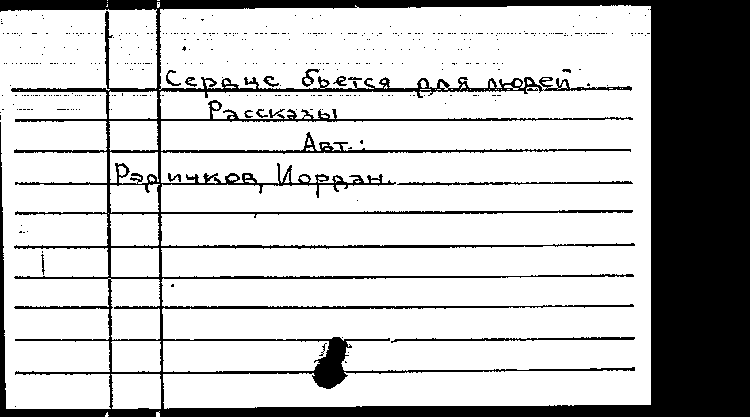 Сердце бьется для людей.
Рассказы
Авт.:
Радичков, Йордан.